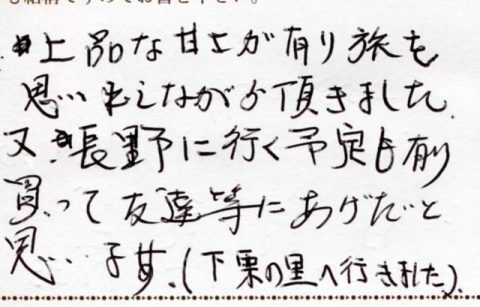 も結構ですのでお書き下さい。
上品な甘さが有り旅を
思い出しながら頂きました
又、長野に行く予定も有り
買って友達等にあげたいと
思います。(下栗の里へ行きました)